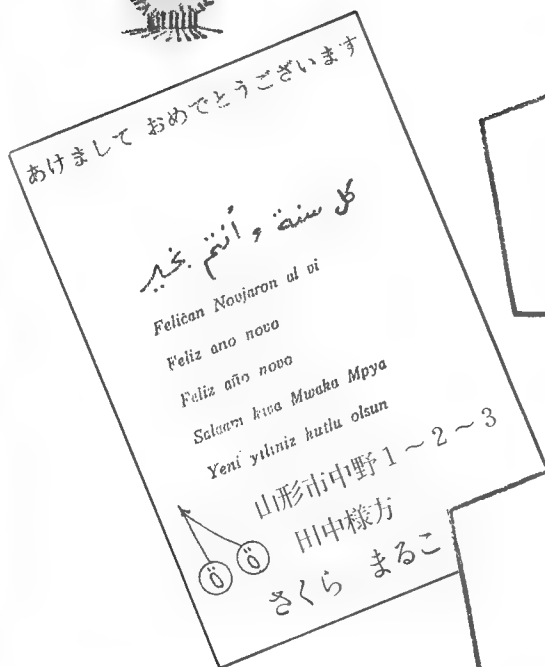 あけまして おめでとうございます
كل سنة و أنتم بخير
Feliĉan Novjaron al vi
Feliz ano novo
Feliz año novo
Salaam kwa Mwaka Mpya
Yeni yılınız kutlu olsun
山形市中野1～2～3
田中様方
さくら まるこ